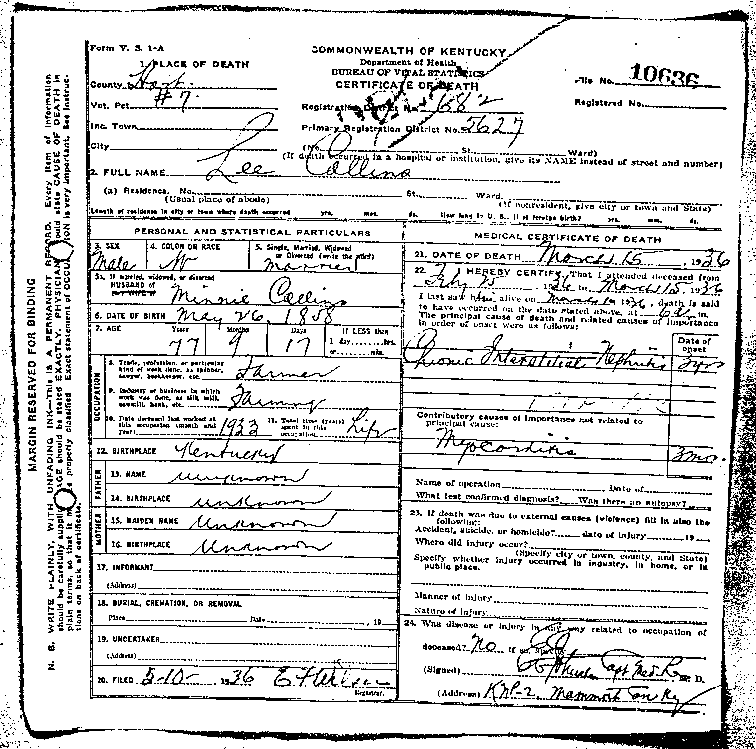 Form V. S. 1-A
COMMONWEALTH OF KENTUCKY
Department of Health
BUREAU OF VITAL STATISTICS
CERTIFICATE OF DEATH
File No. 10636
Registered No.
1. PLACE OF DEATH
County Hart
Vot. Pct. #7
Registration District No. 682
Inc. Town
Primary Registration District No. 5627
City (No. St. Ward)
(If death occurred in a hospital or institution, give its NAME instead of street and number)
2. FULL NAME Lee Collins
(a) Residence. No. St. Ward.
(Usual place of abode) (If nonresident, give city or town and State)
Length of residence in city or town where death occurred yrs. mos. ds. How long in U. S., if of foreign birth? yrs. mos. ds.
PERSONAL AND STATISTICAL PARTICULARS
3. SEX Male
4. COLOR OR RACE W
5. Single, Married, Widowed or Divorced (write the word) Married
5a. If married, widowed, or divorced
HUSBAND of
(or) WIFE of Minnie Collins
6. DATE OF BIRTH May 26, 1858
7. AGE Years 77 Months 9 Days 17 If LESS than 1 day, hrs. or min.
OCCUPATION
8. Trade, profession, or particular kind of work done, as spinner, sawyer, bookkeeper, etc. Farmer
9. Industry or business in which work was done, as silk mill, sawmill, bank, etc. Farming
10. Date deceased last worked at this occupation (month and year) 1933
11. Total time (years) spent in this occupation Life
12. BIRTHPLACE Kentucky
FATHER
13. NAME Unknown
14. BIRTHPLACE Unknown
MOTHER
15. MAIDEN NAME Unknown
16. BIRTHPLACE Unknown
17. INFORMANT
(Address)
18. BURIAL, CREMATION, OR REMOVAL
Place Date , 19
19. UNDERTAKER
(Address)
20. FILED 5-10- 1936
Registrar.
MEDICAL CERTIFICATE OF DEATH
21. DATE OF DEATH March 15, 1936
22. I HEREBY CERTIFY, That I attended deceased from
1936 to March 15, 1936
I last saw him alive on March 1936, death is said
to have occurred on the date stated above, at 6 a m.
The principal cause of death and related causes of importance
in order of onset were as follows:
Date of onset
Chronic Interstitial Nephritis 3 yrs
Contributory causes of importance not related to
principal cause:
Myocarditis 3 mo.
Name of operation Date of
What test confirmed diagnosis? Was there an autopsy?
23. If death was due to external causes (violence) fill in also the
following:
Accident, suicide, or homicide? date of injury 19
Where did injury occur?
(Specify city or town, county, and State)
Specify whether injury occurred in industry, in home, or in
public place.
Manner of injury
Nature of injury
24. Was disease or injury in any way related to occupation of
deceased? No If so, specify
(Signed) Capt Med. R. M. D.
(Address) KNP-2 Mammoth Cave Ky
MARGIN RESERVED FOR BINDING
N. B. WRITE PLAINLY, WITH UNFADING INK—This is A PERMANENT RECORD. Every item of information
should be carefully supplied. AGE should be stated EXACTLY. PHYSICIANS should state CAUSE OF DEATH in
plain terms, so that it may be properly classified. Exact statement of OCCUPATION is very important. See instruc-
tions on back of certificate.